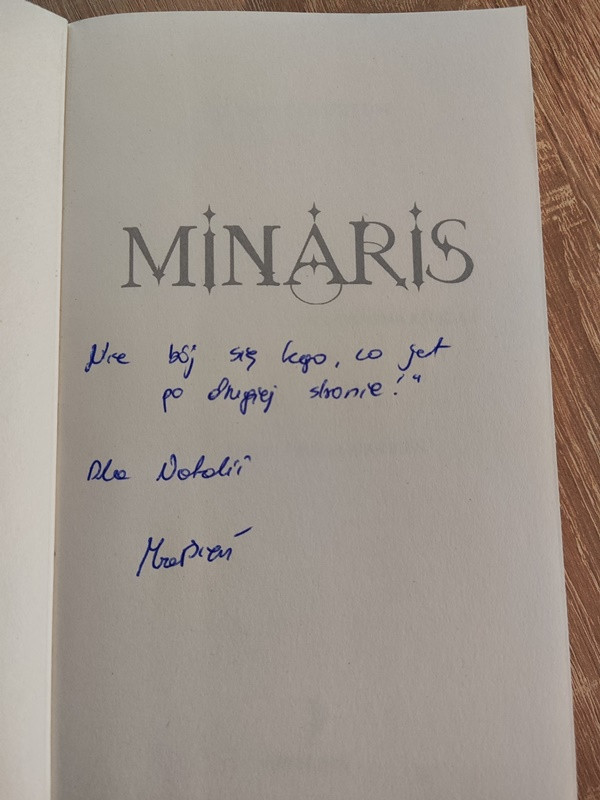 MINARIS
„Nie bój się tego, co jet
po drugiej stronie!"
Dla Natalii